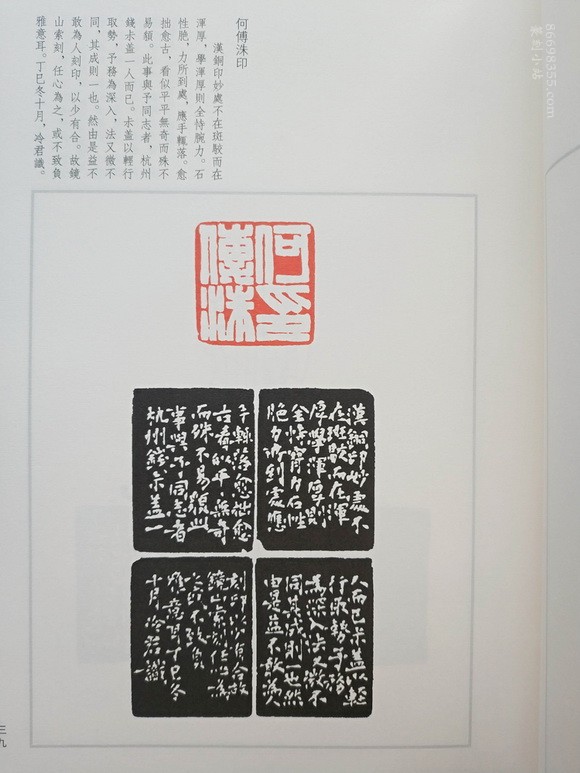 何傅洙印
漢銅印妙處不在斑駁而在
渾厚，學渾厚則全恃腕力。石
性脆，力所到處，應手輒落。愈
拙愈古，看似平平無奇而殊不
易䫉。此事與予同志者，杭州
錢尗蓋一人而已。尗蓋以輕行
取勢，予務為深入，法又微不
同，其成則一也。然由是益不
敢為人刻印，以少有合。故鏡
山索刻，任心為之，或不致負
雅意耳。丁巳冬十月，冷君識。
何印
傅洙
漢銅印妙處不
在斑駁而在渾
厚學渾厚則
全恃腕力石性
脆力所到處應
手輒落愈拙愈
古看似平平無奇
而殊不易䫉此
事與予同志者
杭州錢尗蓋一
人而已尗蓋以輕
行取勢予務
為深入法又微不
同其成則一也然
由是益不敢為人
刻印以少有合故
鏡山索刻任心為
之或不致負
雅意耳丁巳冬
十月冷君識
三九
86698355.com
篆刻小站